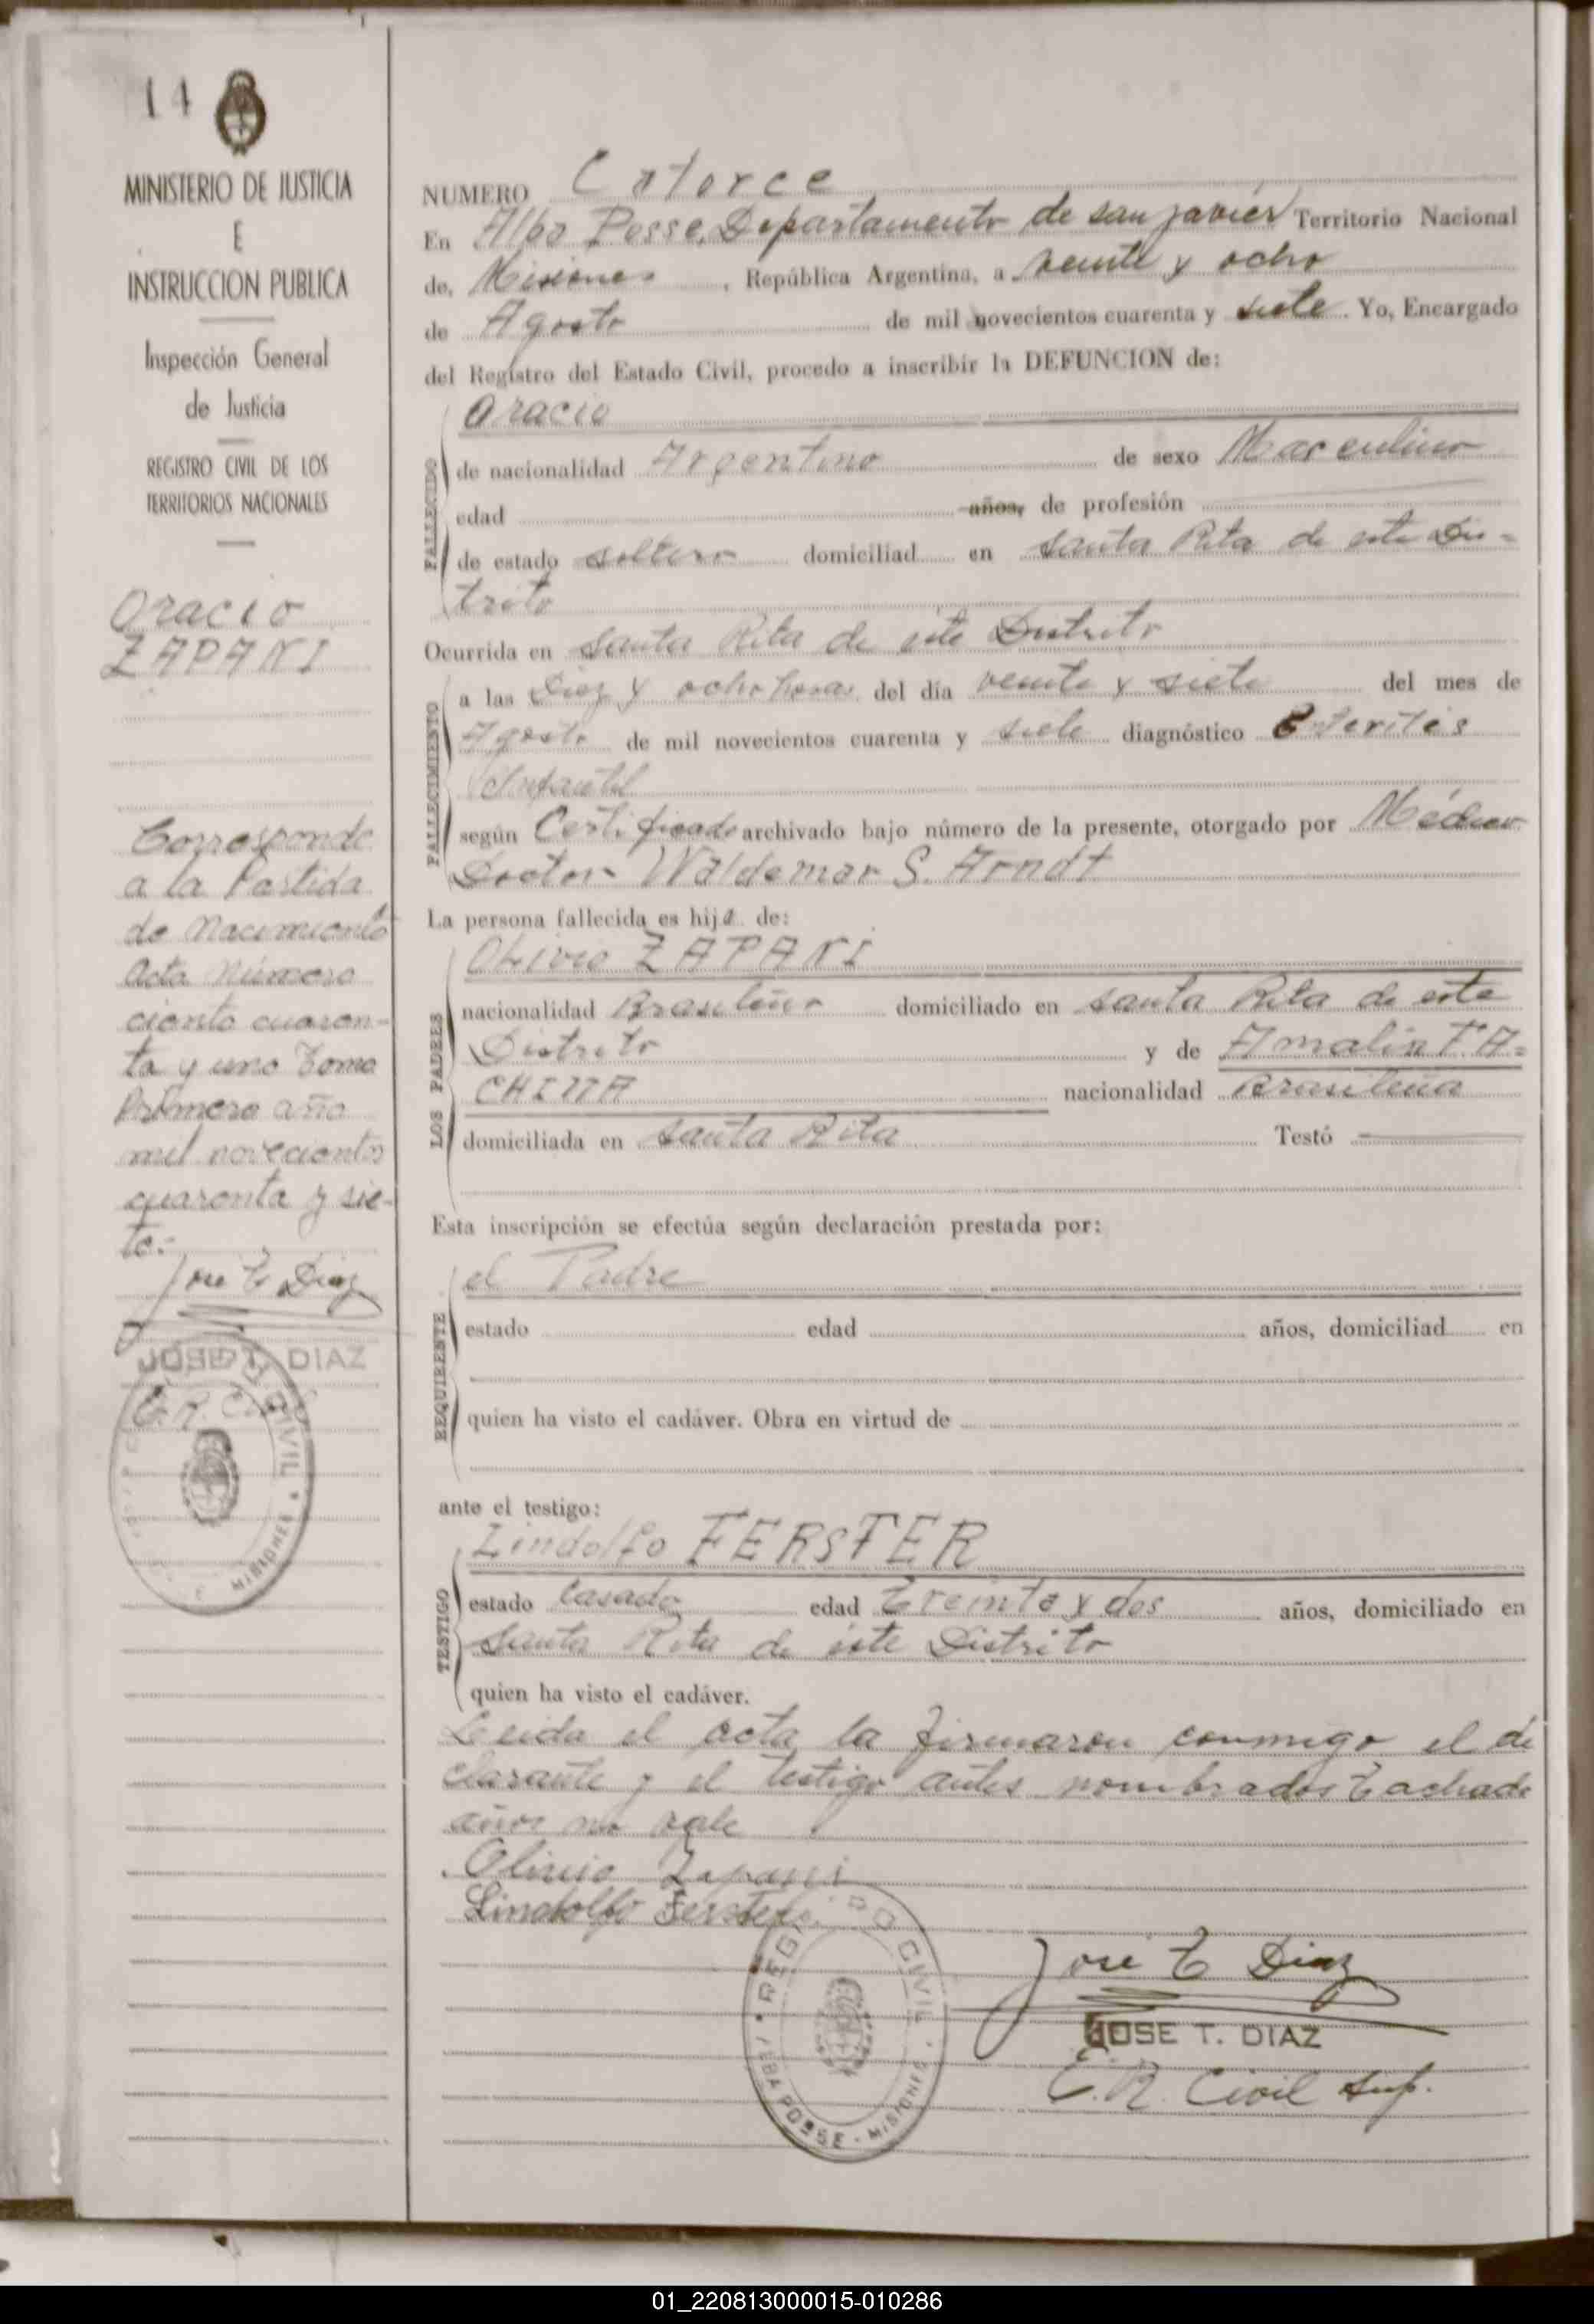 14
MINISTERIO DE JUSTICIA
E
INSTRUCCION PUBLICA
Inspección General
de Justicia
REGISTRO CIVIL DE LOS
TERRITORIOS NACIONALES
Oracio
ZAPANI
Corresponde
a la Partida
de Nacimiento
Acta Número
ciento cuaren-
ta y uno Tomo
Primero año
mil novecientos
cuarenta y sie-
te.-
Jose T. Diaz
JOSE T. DIAZ
E.R. Civil
MISIONES
NUMERO Catorce
En Alba Posse, Departamento de San Javier Territorio Nacional
de, Misiones, República Argentina, a veinte y ocho
de Agosto de mil novecientos cuarenta y siete. Yo, Encargado
del Registro del Estado Civil, procedo a inscribir la DEFUNCION de:
FALLECIDO
Oracio
de nacionalidad Argentino de sexo Masculino
edad años, de profesión
de estado soltero domiciliad en Santa Rita de este Dis-
trito
Ocurrida en Santa Rita de este Distrito
FALLECIMIENTO
a las Diez y ocho horas del día veinte y siete del mes de
Agosto de mil novecientos cuarenta y siete diagnóstico Enteritis
Infantil
según Certificado archivado bajo número de la presente, otorgado por Médico
Doctor Waldemar S. Arndt
La persona fallecida es hijo de:
LOS PADRES
Olivio ZAPANI
nacionalidad Brasileño domiciliado en Santa Rita de este
Distrito y de Amalia FA-
CHINA nacionalidad Brasileña
domiciliada en Santa Rita Testó
Esta inscripción se efectúa según declaración prestada por:
REQUIRENTE
el Padre
estado edad años, domiciliad en
quien ha visto el cadáver. Obra en virtud de
ante el testigo:
TESTIGO
Lindolfo FERSTER
estado Casado edad Treinta y dos años, domiciliado en
Santa Rita de este Distrito
quien ha visto el cadáver.
Leida el acta la firmaron conmigo el de
clarante y el testigo antes nombrados Tachado
años no vale
Olivio Zapani
Lindolfo Ferster
REGISTRO CIVIL
ALBA POSSE - MISIONES
Jose T. Diaz
JOSE T. DIAZ
E.R. Civil Sup.
01_220813000015-010286